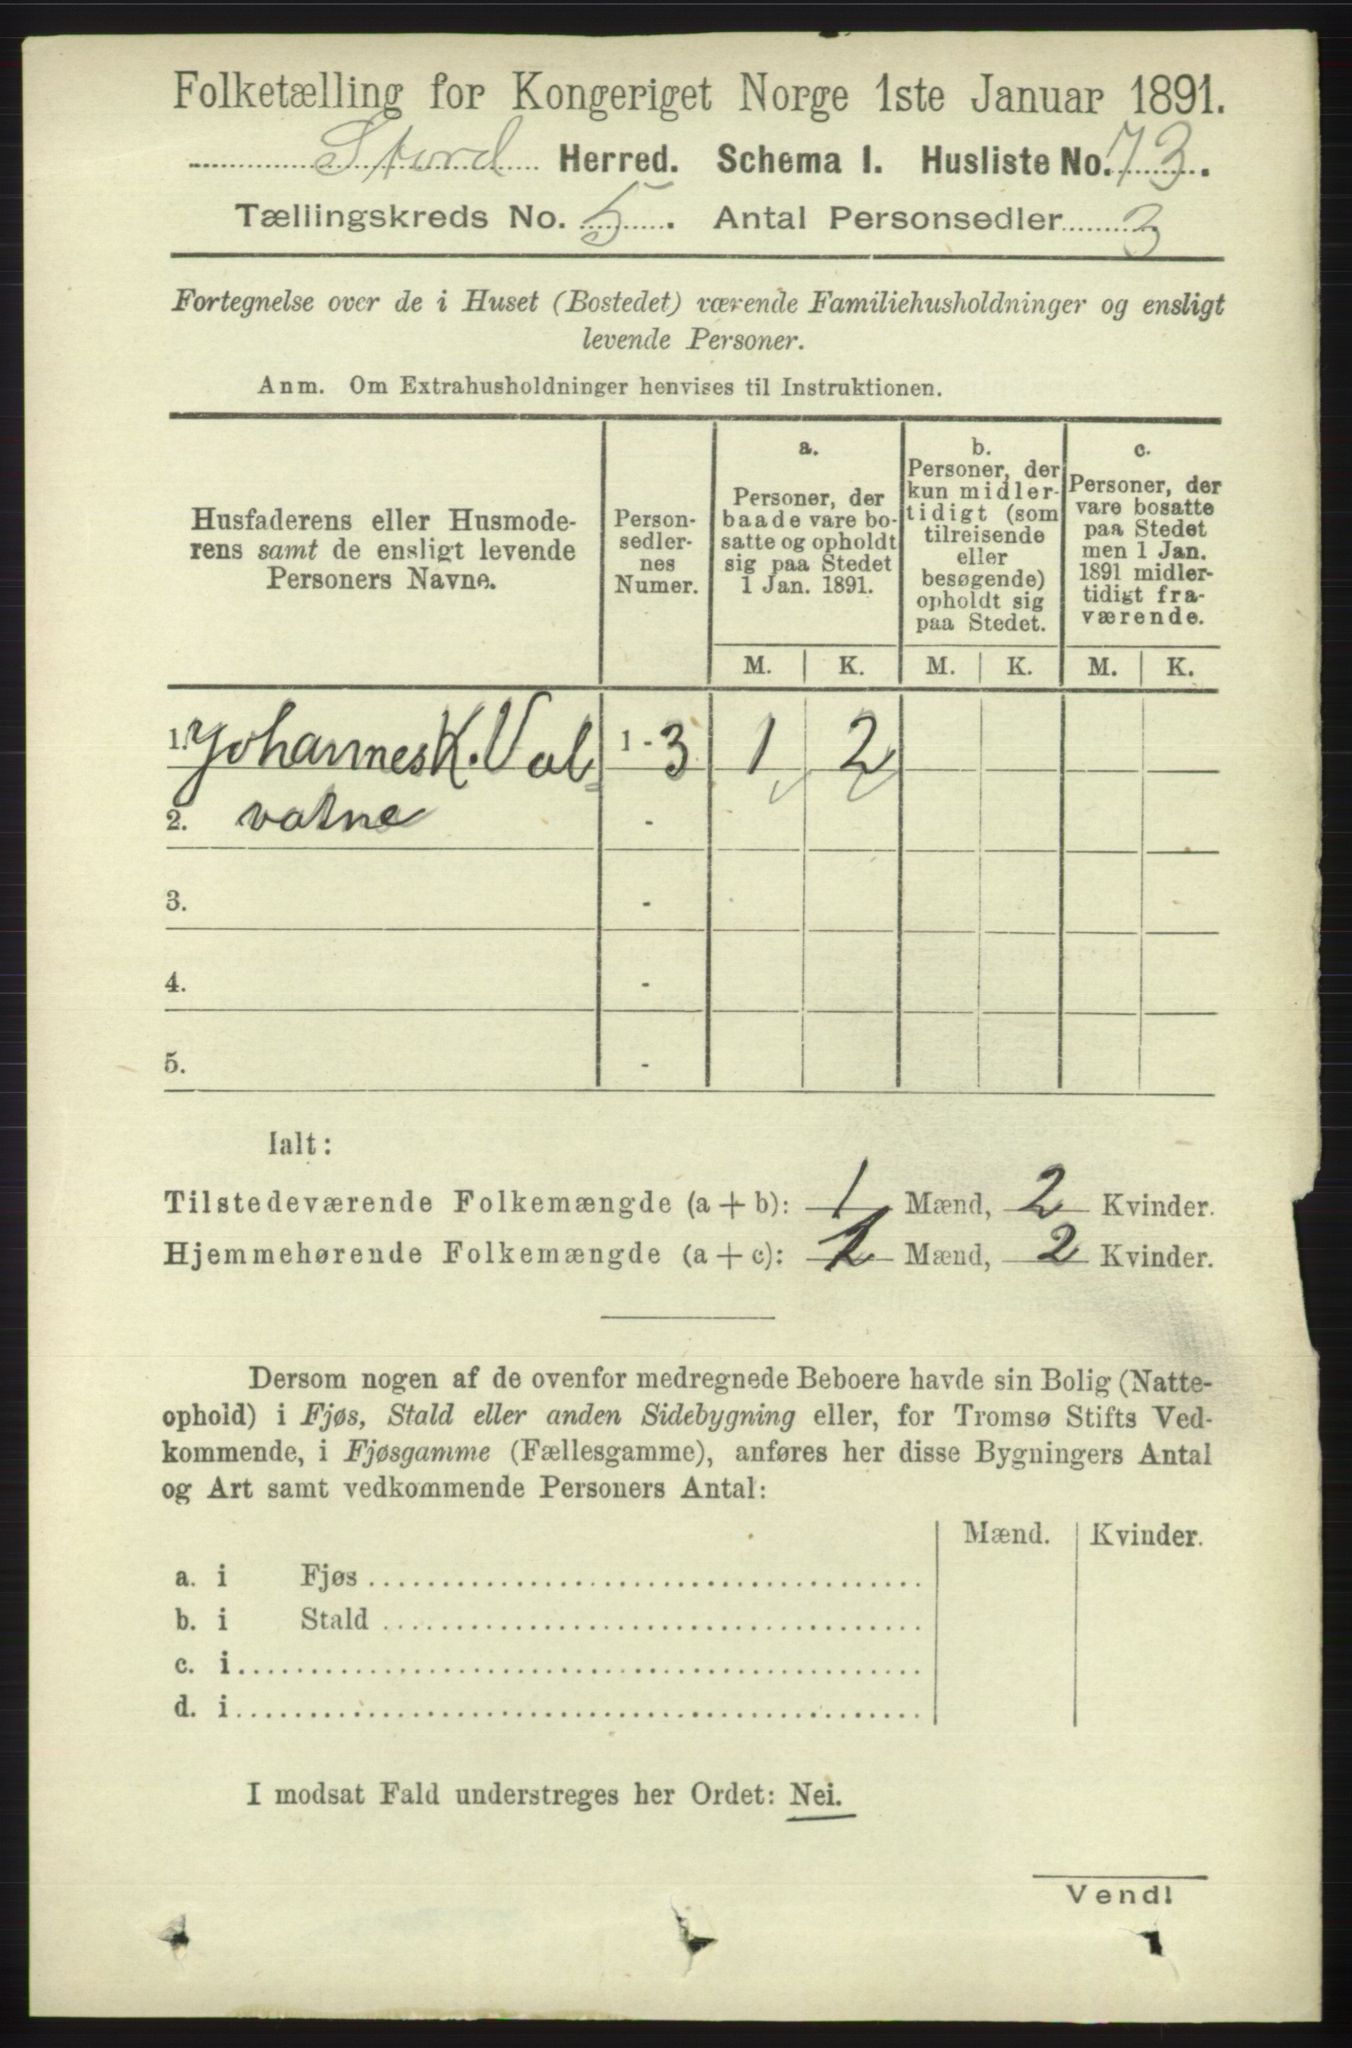 Folketælling for Kongeriget Norge 1ste Januar 1891.
Stord Herred. Schema I. Husliste No. 73.
Tællingskreds No. 5. Antal Personsedler 3
Fortegnelse over de i Huset (Bostedet) værende Familiehusholdninger og ensligt
levende Personer.
Anm. Om Extrahusholdninger henvises til Instruktionen.
Husfaderens eller Husmode-
rens samt de ensligt levende
Personers Navne.
Person-
sedler-
nes
Numer.
a.
Personer, der
baade vare bo-
satte og opholdt
sig paa Stedet
1 Jan. 1891.
b.
Personer, der
kun midler-
tidigt (som
tilreisende
eller
besøgende)
opholdt sig
paa Stedet.
c.
Personer, der
vare bosatte
paa Stedet
men 1 Jan.
1891 midler-
tidigt fra-
værende.
M. K. M. K. M. K.
1. Johannes K. Val 1-3 1 2
2. vatne -
3. -
4. -
5. -
Ialt:
Tilstedeværende Folkemængde (a + b): 1 Mænd, 2 Kvinder.
Hjemmehørende Folkemængde (a + c): 1 Mænd, 2 Kvinder.
Dersom nogen af de ovenfor medregnede Beboere havde sin Bolig (Natte-
ophold) i Fjøs, Stald eller anden Sidebygning eller, for Tromsø Stifts Ved-
kommende, i Fjøsgamme (Fællesgamme), anføres her disse Bygningers Antal
og Art samt vedkommende Personers Antal:
Mænd. Kvinder.
a. i Fjøs
b. i Stald
c. i
d. i
I modsat Fald understreges her Ordet: Nei.
Vend!